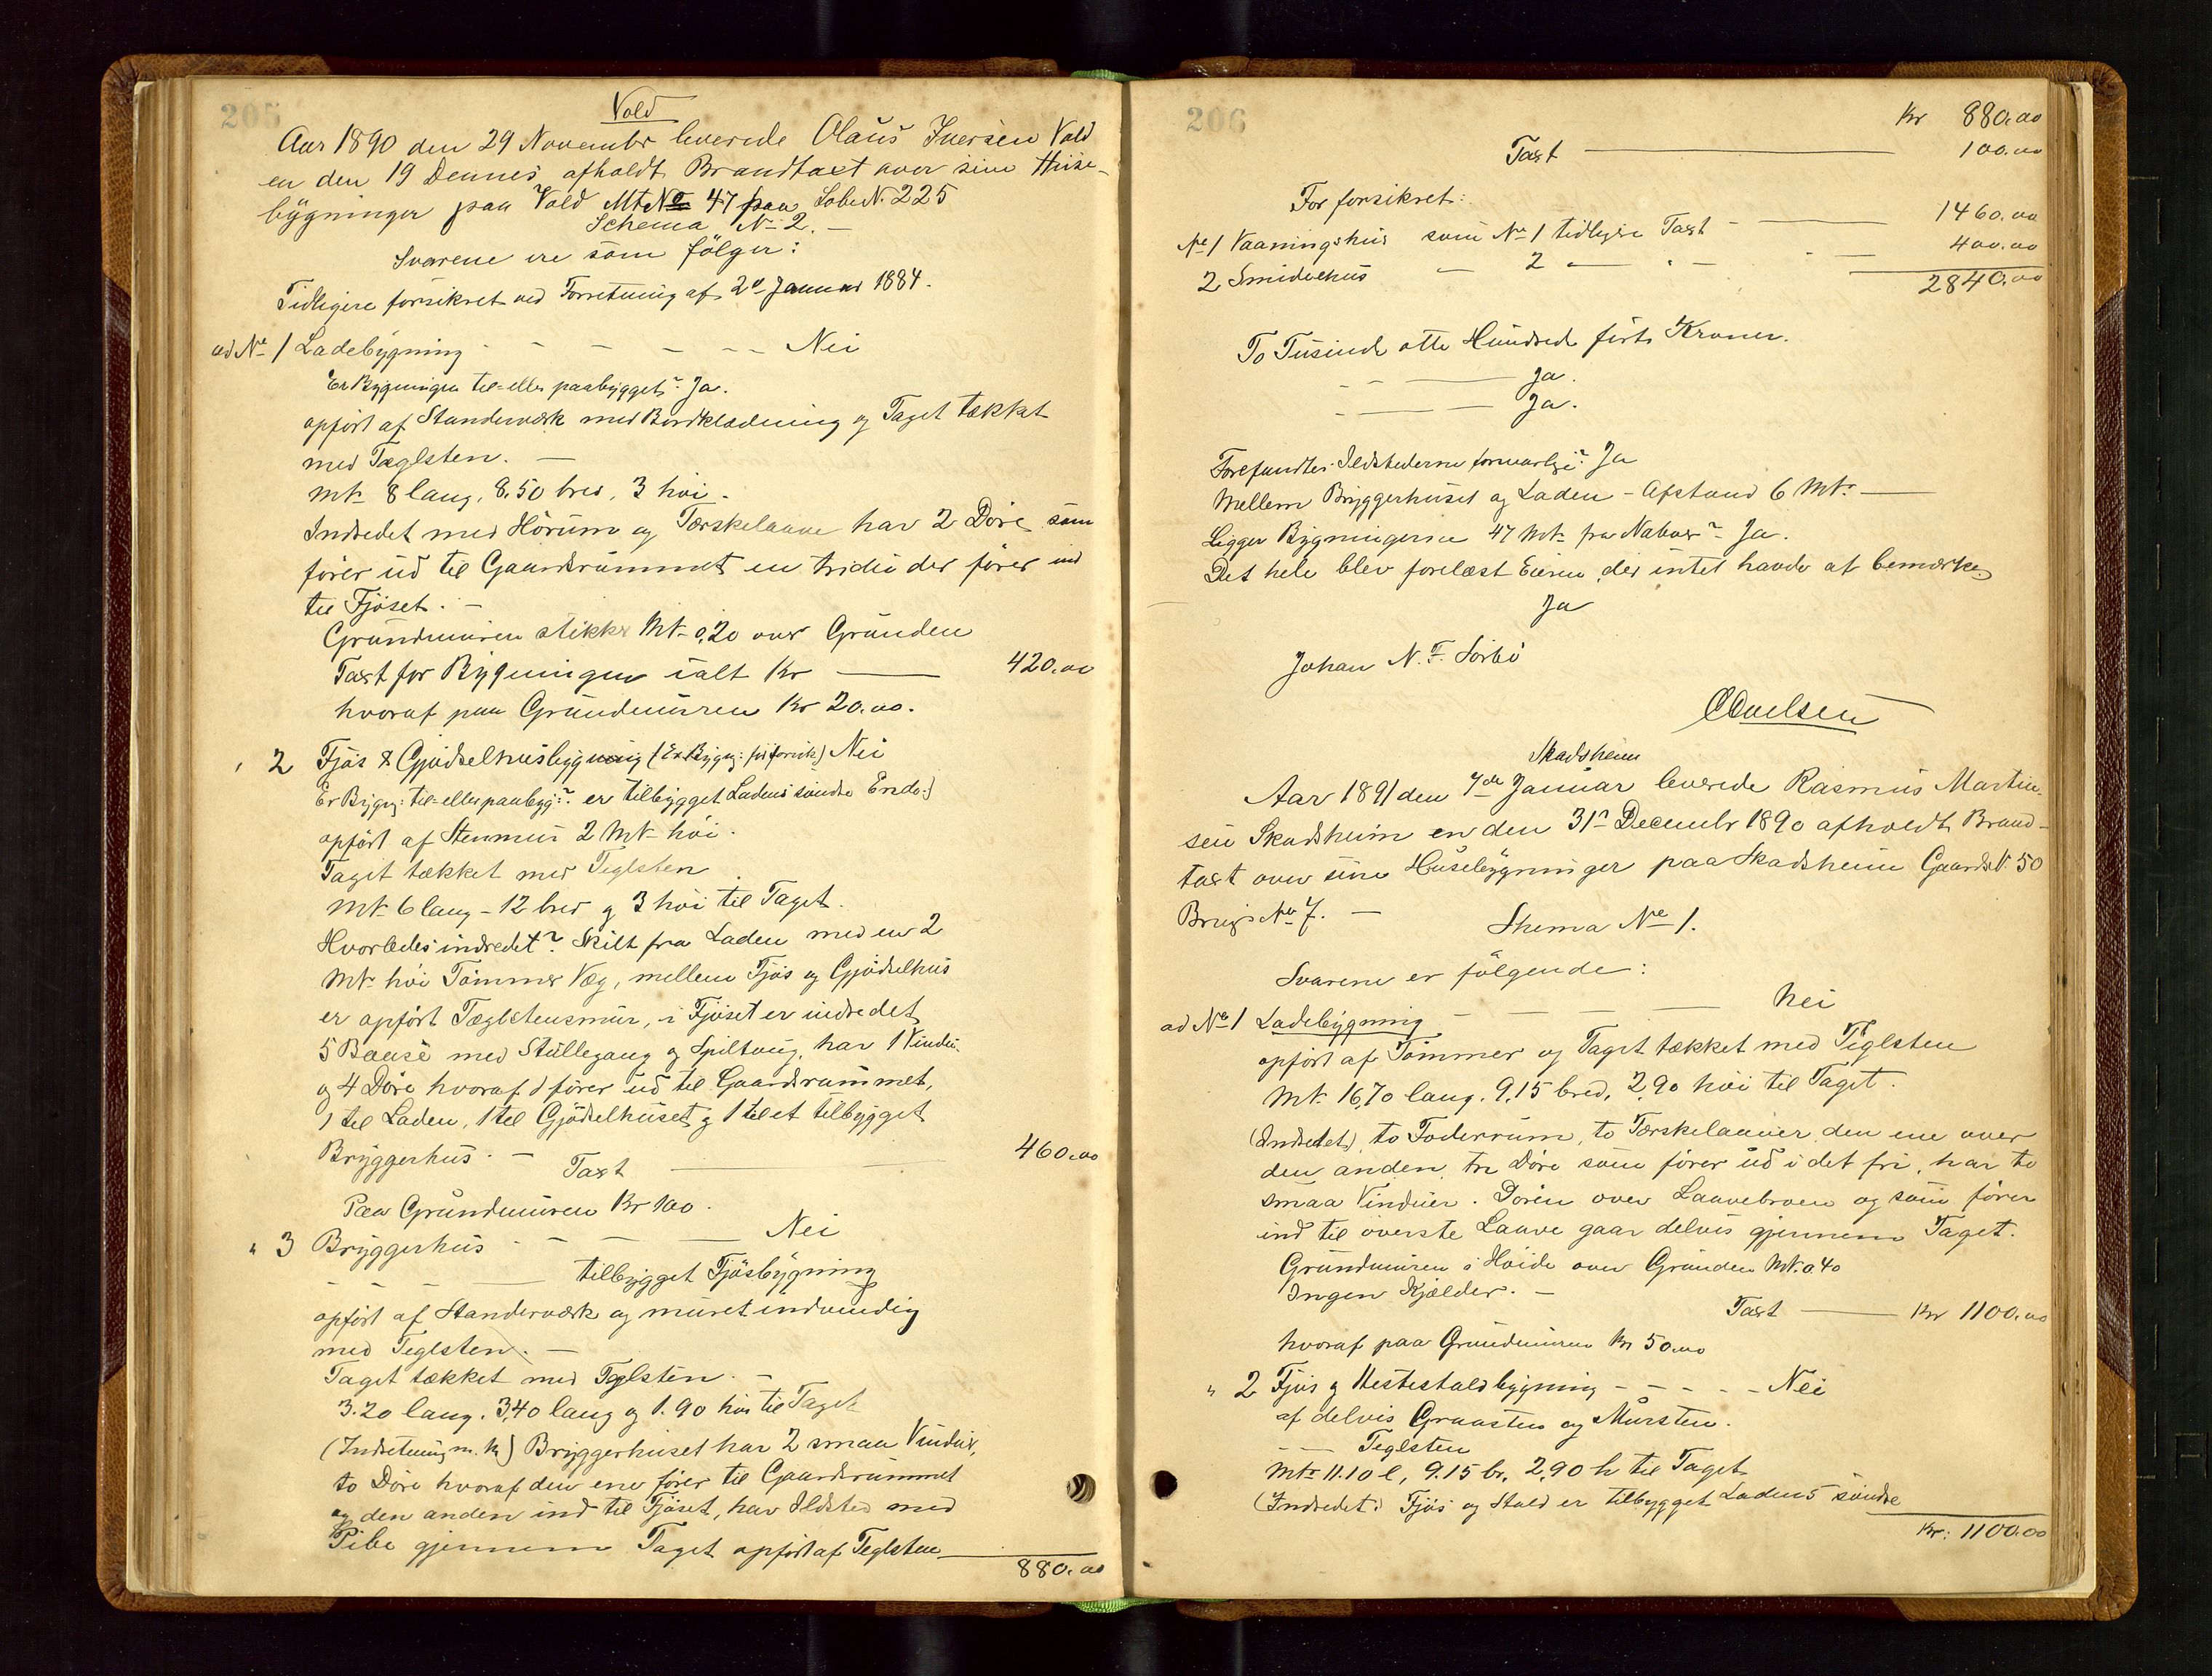 205
Vold
Aar 1890 den 29 Novembr leverede Olaus Iversen Vold
en den 19 Dennes afholdt Brandtaxt over sine Huse-
bygninger paa Vold Mt No 47 paa Løbe N. 225
Schema No 2. –
Svarene ere som følger:
Tidligere forsikret ved Forretning af 2de Januar 1884.
ad No 1 Ladebygning - - - - - - Nei
Er Bygningen til- eller paabygget? Ja.
opført af Standerværk med Bordklædning og Taget tækket
med Tæglsten. –
Mt. 8 lang, 8,50 bred, 3 høi.
Indredet med Hørum og Tærskelaave har 2 Døre som
fører ud til Gaardsrummet en tridie der fører ind
til Fjøset. –
Grundmuren stikker Mt. 0,20 over Grunden
Taxt for Bygningen ialt Kr — 420.00
hvoraf paa Grundmuren Kr 20.00.
" 2 Fjøs & Gjødselhusbygning (Er Bygn: før forsik.) Nei
Er Bygn: til- eller paabyg:? er tilbygget Ladens søndre Ende.)
opført af Stenmur 2 Mt. høi.
Taget tækket med Teglsten
Mt. 6 lang – 12 bred og 3 høi til Taget.
Hvorledes indredet? Skilt fra Laden med en 2
Mt. høi Tømmer Væg, mellem Fjøs og Gjødselhus
er opført Tæglstensmur, i Fjøset er indredet
5 Baase med Stillegang og Spiltoug, har 1 Vindu
og 4 Døre hvoraf 1 fører ud til Gaardsrummet,
1 til Laden, 1 til Gjødselhuset og 1 til et tilbygget
Bryggerhus. – Taxt — 460.00
Paa Grundmuren Kr 100.
" 3 Bryggerhus - - - — Nei
- - - — tilbygget Fjøsbygning
opført af Standerværk og muret indvendig
med Teglsten. –
Taget tækket med Teglsten. –
3.20 lang. 3,40 lang og 1.90 høi til Taget
(Indretning m. M.) Bryggerhuset har 2 smaa Vinduer,
to Døre hvoraf den ene fører til Gaardsrummet
og den anden ind til Fjøset, har Ildsted med
Pibe gjennem Taget opført af Teglsten
880.00
206
Kr 880.00
Taxt — 100.00
For forsikret:
No 1 Vaaningshus som No 1 tidligere Taxt — 1460.00
2 Smidehus — 2 — " — 400.00
2840.00
To Tusinde otte Hundrede førti Kroner.
- - — Ja.
- - — Ja.
Forefandtes Ildstederne forsvarlige? Ja
Mellem Bryggerhuset og Laden – Afstand 6 Mt. —
Ligger Bygningerne 47 Mt. fra Naboer? Ja.
Det hele blev forelæst Eieren, der intet havde at bemærke
Ja
Johan N. F. Sørbø
Skadsheim
Aar 1891 den 7de Januar leverede Rasmus Martin-
sen Skadsheim en den 31te Decembr 1890 afholdt Brand-
taxt over sine Husebygninger paa Skadsheim Gaards N. 50
Brugs No 7. –
Shema No 1.
Svarene er følgende:
ad No 1 Ladebygning - - - - — Nei
opført af Tømmer og Taget tækket med Teglsten
Mt. 16,70 lang. 9,15 bred, 2,90 høi til Taget.
(Indredet) to Foderrum, to Tærskelaaver, den ene over
den anden, tre Døre som fører ud i det fri, har to
smaa Vinduer. Døren over Laavebroen og som fører
ind til øverste Laave gaar delvis gjennem Taget.
Grundmuren i Høide over Grunden Mt. 0.40
Ingen Kjælder. –
Taxt — Kr 1100.00
hvoraf paa Grundmuren Kr 50.00
" 2 Fjøs og Hestestaldbygning - - - - - Nei
af delvis Graasten og Mursten.
- — Teglsten
Mt. 11.10 l, 9.15 br, 2,90 h til Taget
(Indredet) Fjøs og Stald er tilbygget Ladens søndre
Kr: 1100.00